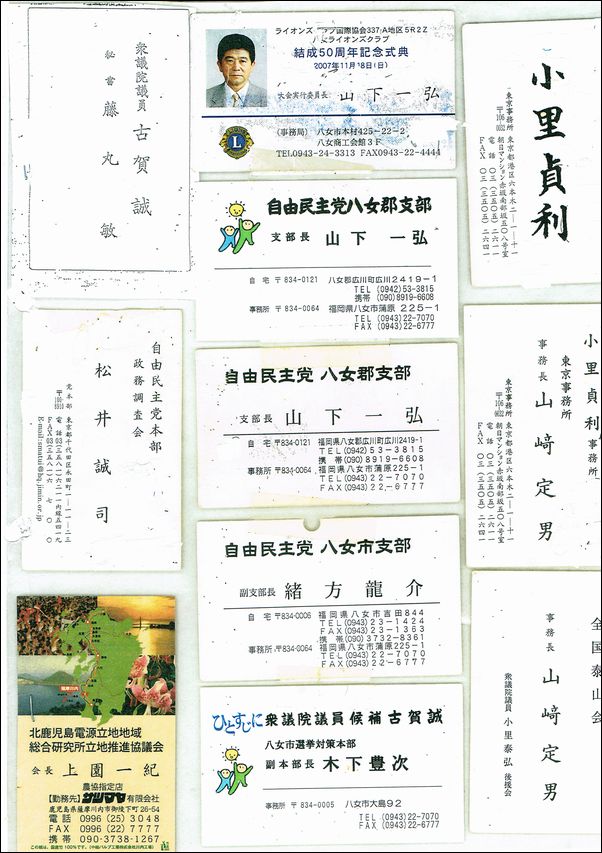 衆議院議員 古賀 誠
秘書 藤丸 敏
ライオンズクラブ国際協会337-A地区5R2Z
八女ライオンズクラブ
結成50周年記念式典
2007年11月18日(日)
大会実行委員長 山下一弘
(事務局) 八女市本村425-22-2
八女商工会館3F
TEL0943-24-3313 FAX0943-22-4444
小里貞利
東京事務所
〒106-0032 東京都港区六本木二ー一ー十一
朝日マンション赤坂南部坂五〇八号室
電話 〇三(三五〇五)二六四一
FAX 〇三(三五〇五)二六四一
自由民主党八女郡支部
支部長 山下一弘
自宅 〒834-0121 八女郡広川町広川2419-1
TEL (0942)53-3815
携帯 (090)8919-6608
事務所 〒834-0064 福岡県八女市蒲原 225-1
TEL (0943)22-7070
FAX (0943)22-6777
自由民主党本部
政務調査会
松井誠司
党本部
〒100-8910 東京都千代田区永田町一ー一一ー二三
自由民主党 八女郡支部
支部長 山下一弘
自宅 〒834-0121 福岡県八女郡広川町広川2419-1
TEL (0942)53-3815
携帯 (090)8919-6608
事務所 〒834-0064 福岡県八女市蒲原225-1
TEL (0943)22-7070
FAX (0943)22-6777
小里貞利事務所
東京事務所
事務長 山﨑定男
東京事務所
〒106-0032 東京都港区六本木二ー一ー十一
朝日マンション赤坂南部坂五〇八号室
電話 〇三(三五〇五)二六四一
FAX 〇三(三五〇五)二六四一
自由民主党 八女市支部
副支部長 緒方龍介
自宅 〒834-0006 福岡県八女市吉田844
TEL (0943)23-1424
FAX (0943)23-1363
携帯 (090)3732-8361
事務所 〒834-0064 福岡県八女市蒲原225-1
TEL (0943)22-7070
FAX (0943)22-6777
全国泰山会
事務長 山﨑定男
衆議院議員 小里泰弘 後援会
薩摩川内
北鹿児島電源立地地域
総合研究所立地推進協議会
会長 上園一紀
農協指定店
【勤務先】サツマヤ有限会社
鹿児島県薩摩川内市御陵下町26-54
電話 0996(25)3048
FAX 0996(22)7777
携帯 090-3738-1267
ひとすじに 衆議院議員候補古賀誠
八女市選挙対策本部
副本部長 木下豊次
事務所 〒834-0005 八女市大島92
TEL (0943)22-7070
FAX (0943)22-6777